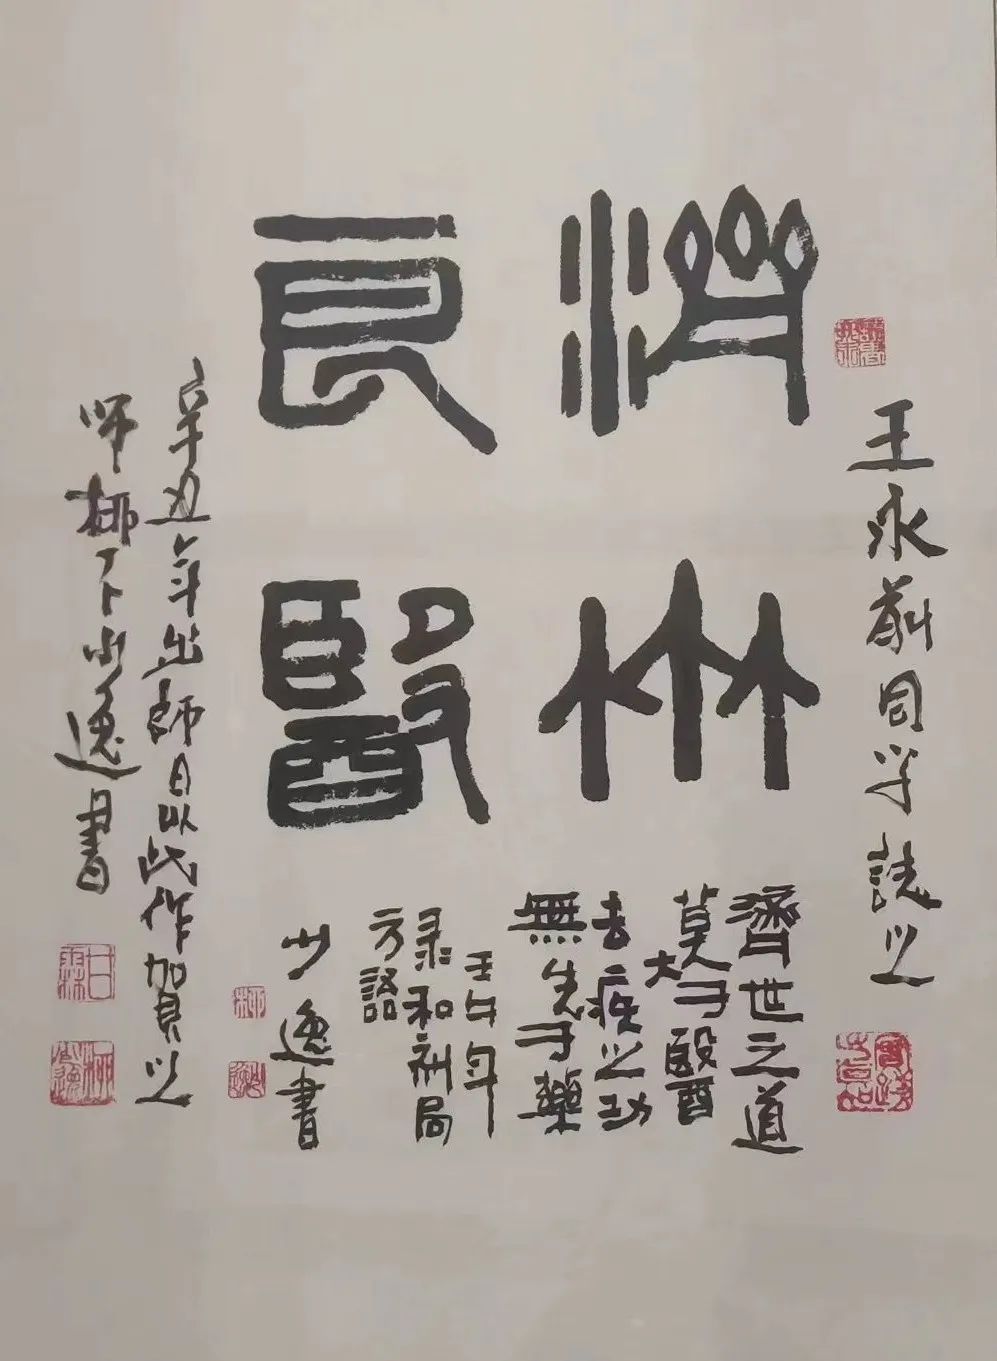 王永前同学誌之
濟世
良醫
濟世之道
莫大于醫
去疾之功
無先于藥
壬午年
录和剂局
方語
少逸書
辛丑年出師日以此作賀之
师柳下少逸書
甘霖